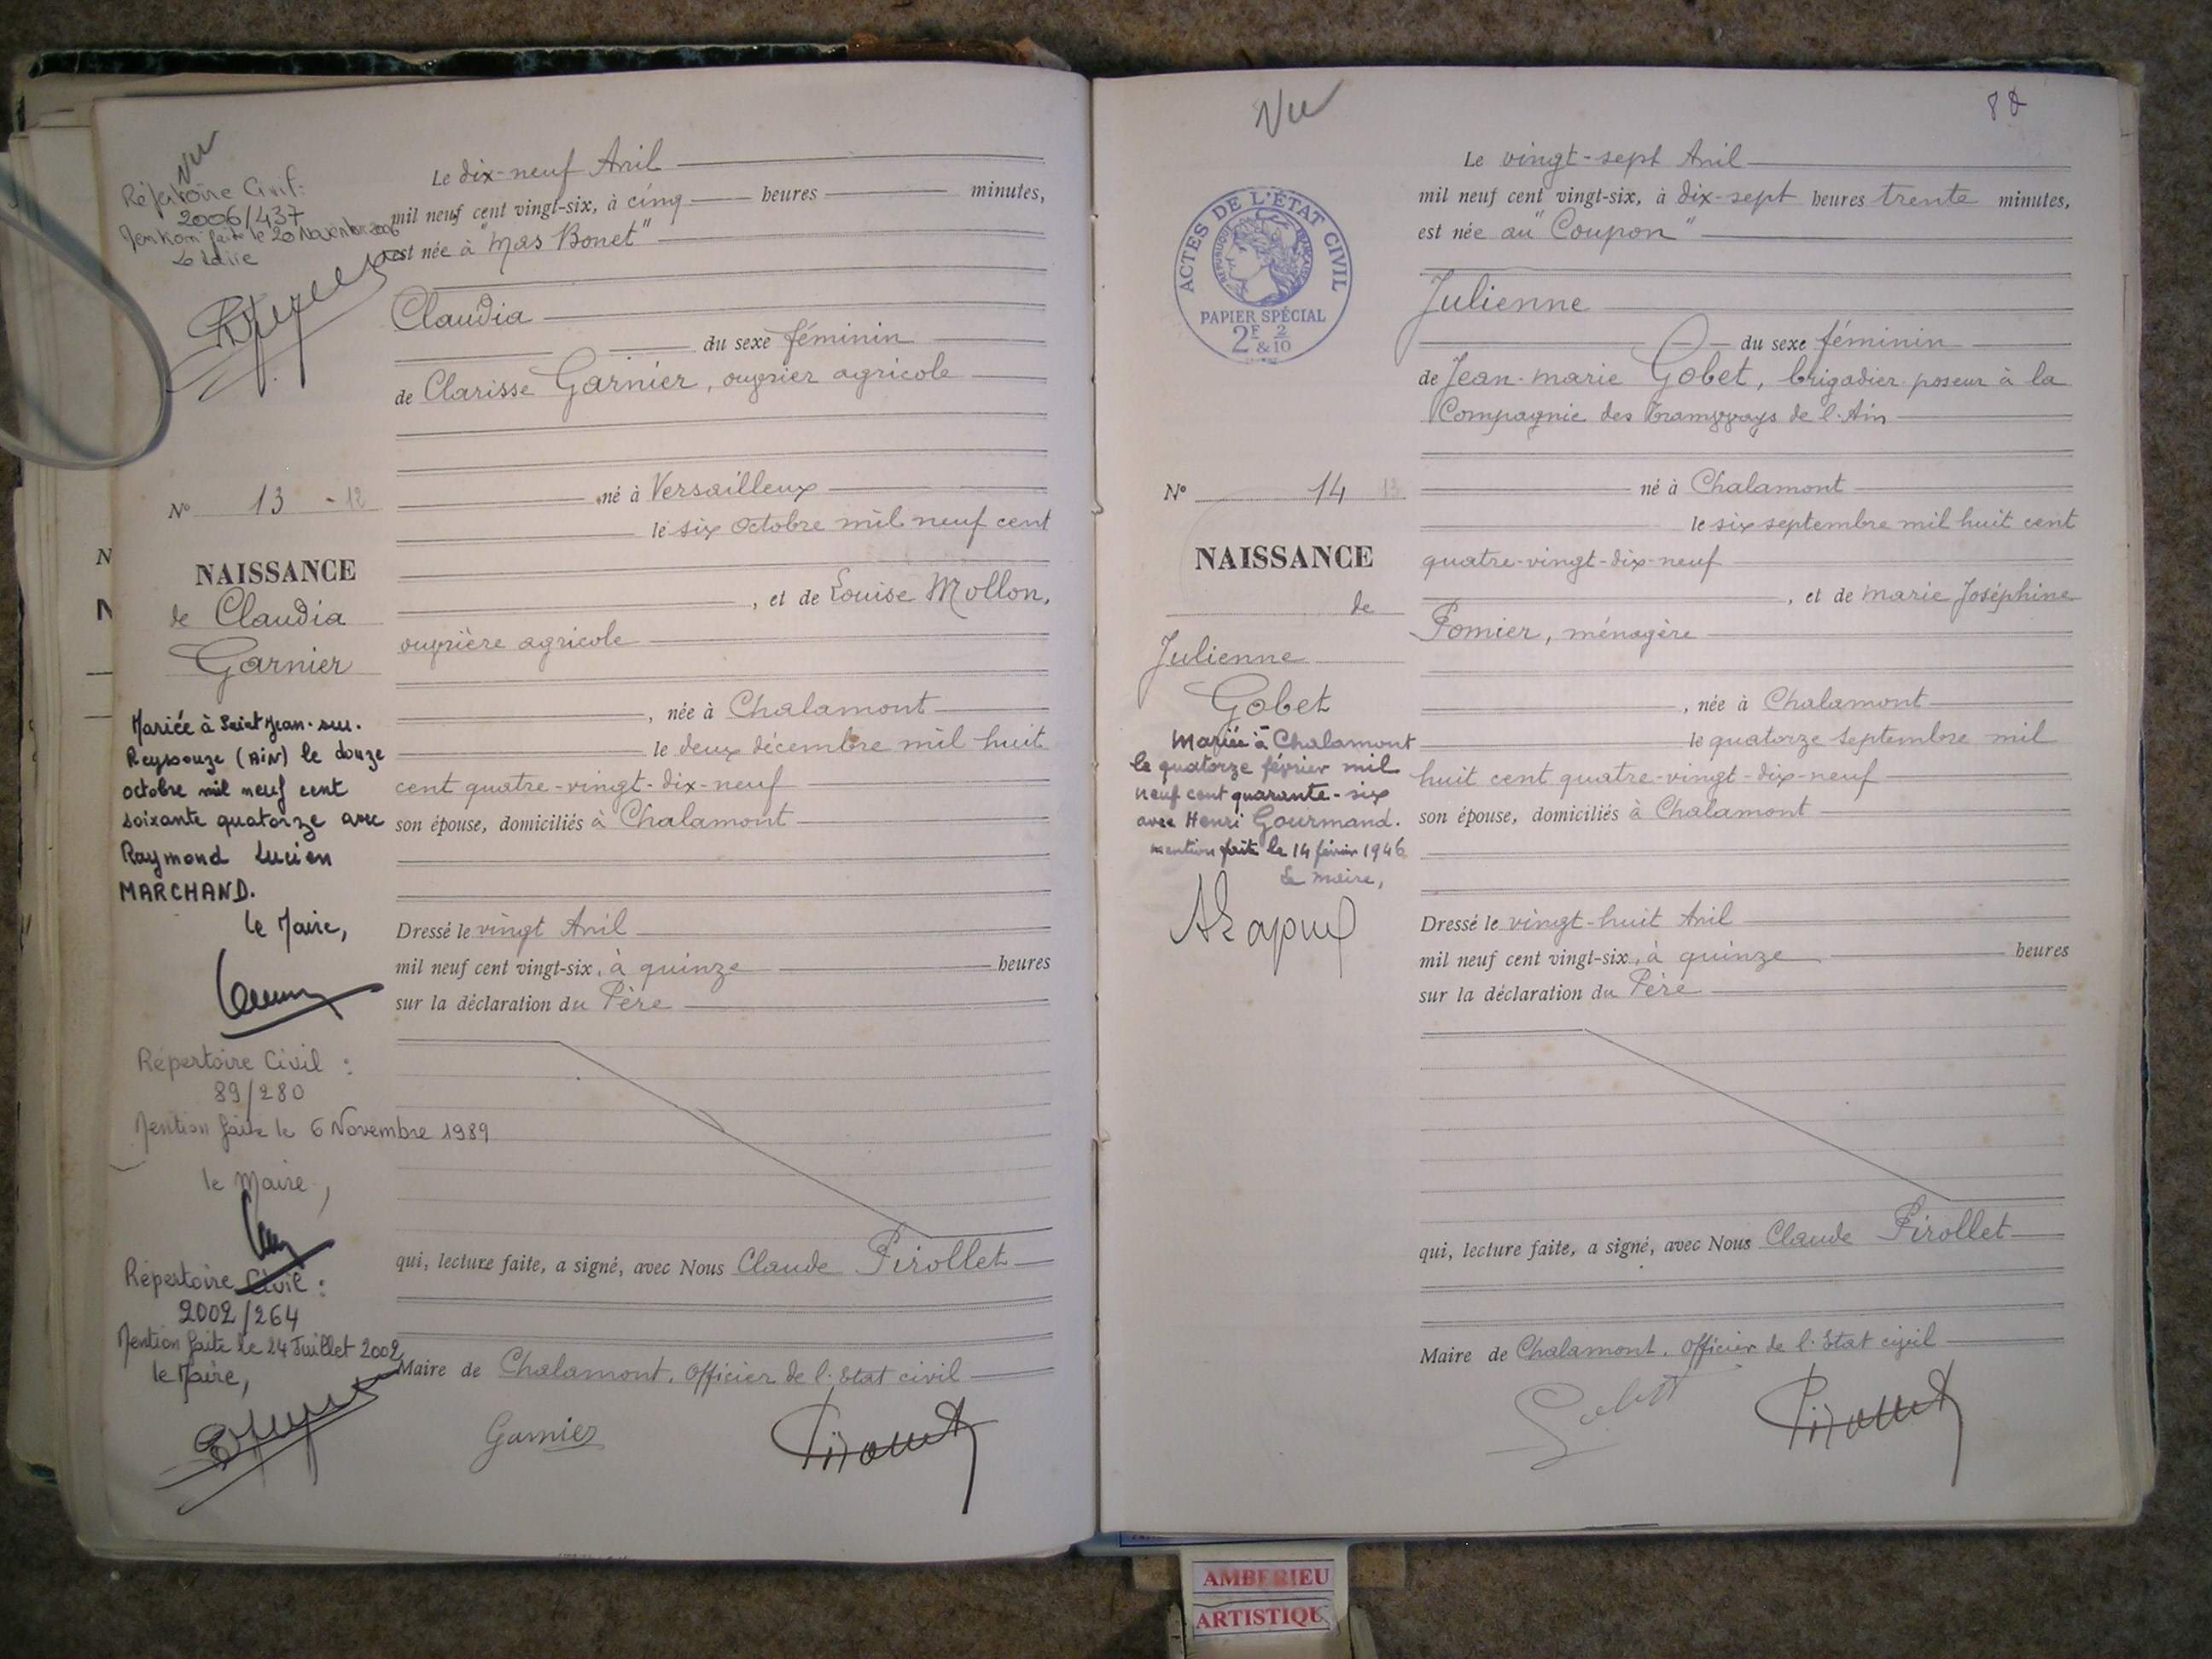 Vu
Répertoire Civil:
2006/437
Mention faite le 20 Novembre 2006
Le Maire
N° 13 - 12
NAISSANCE
de Claudia
Garnier
Mariée à Saint Jean-sur-
Reyssouze (AIN) le douze
octobre mil neuf cent
soixante quatorze avec
Raymond Lucien
MARCHAND.
le Maire,
Répertoire Civil :
89/280
Mention faite le 6 Novembre 1989
le Maire,
Répertoire Civil :
2002/264
Mention faite le 24 Juillet 2002
le Maire,
Le dix-neuf Avril
mil neuf cent vingt-six, à cinq heures minutes,
est née à "Mas Bonet"
Claudia
du sexe féminin
de Clarisse Garnier, ouvrier agricole
né à Versailleux
le six octobre mil neuf cent
, et de Louise Mollon,
ouvrière agricole
, née à Chalamont
le deux décembre mil huit
cent quatre-vingt-dix-neuf
son épouse, domiciliés à Chalamont
Dressé le vingt Avril
mil neuf cent vingt-six, à quinze heures
sur la déclaration du Père
qui, lecture faite, a signé, avec Nous Claude Pirollet
Maire de Chalamont, Officier de l'Etat civil
Garnier Pirollet
Vu
88
ACTES DE L'ÉTAT CIVIL
RÉPUBLIQUE FRANÇAISE
PAPIER SPÉCIAL
2F 2
&10
N° 14 13
NAISSANCE
de
Julienne
Gobet
Mariée à Chalamont
le quatorze février mil
neuf cent quarante-six
avec Henri Gourmand.
mention faite le 14 février 1946
Le maire,
Le vingt-sept Avril
mil neuf cent vingt-six, à dix-sept heures trente minutes,
est née au "Coupon"
Julienne
du sexe féminin
de Jean-Marie Gobet, brigadier poseur à la
Compagnie des Tramways de l'Ain
né à Chalamont
le six septembre mil huit cent
quatre-vingt-dix-neuf
, et de Marie Joséphine
Pomier, ménagère
, née à Chalamont
le quatorze septembre mil
huit cent quatre-vingt-dix-neuf
son épouse, domiciliés à Chalamont
Dressé le vingt-huit Avril
mil neuf cent vingt-six, à quinze heures
sur la déclaration du Père
qui, lecture faite, a signé, avec Nous Claude Pirollet
Maire de Chalamont, Officier de l'Etat civil
Gobet Pirollet
AMBERIEU
ARTISTIQU